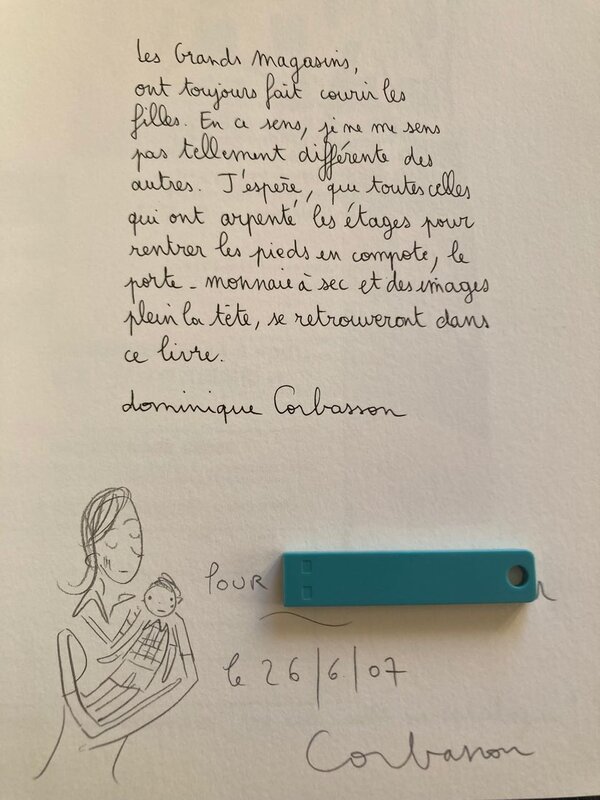 Les Grands Magasins,
ont toujours fait courir les
filles. En ce sens, je ne me sens
pas tellement différente des
autres. J'espère, que toutes celles
qui ont arpenté les étages pour
rentrer les pieds en compote, le
porte-monnaie à sec et des images
plein la tête, se retrouveront dans
ce livre.
dominique Corbasson
POUR
le 26/6/07
Corbasson